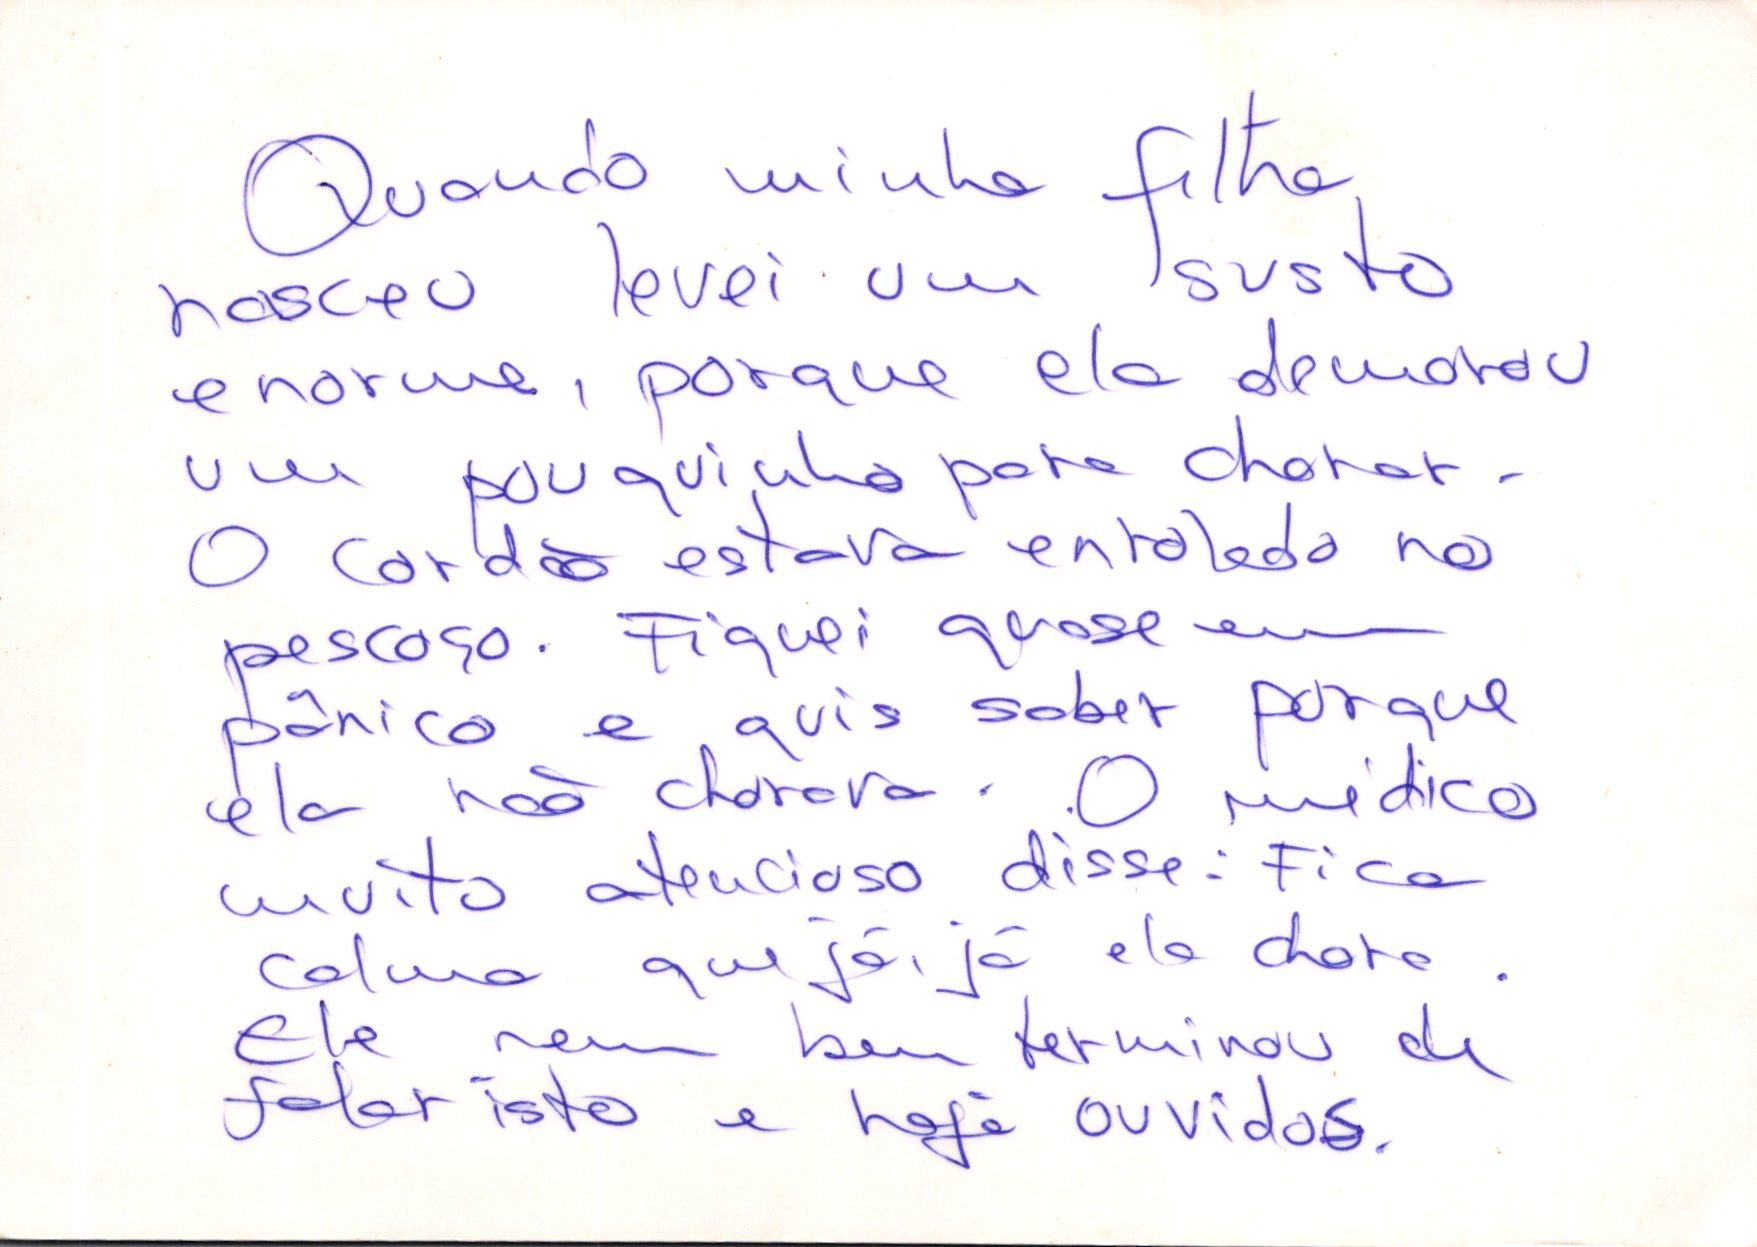 Quando minha filha
nasceu levei um susto
enorme, porque ela demorou
um pouquinho para chorar.
O cordão estava enrolado no
pescoço. Fiquei quase em
pânico e quis saber porque
ela não chorava. O médico
muito atencioso disse: Fica
calma que já, já ela chora.
Ele nem bem terminou de
falar isto e haja ouvidos.